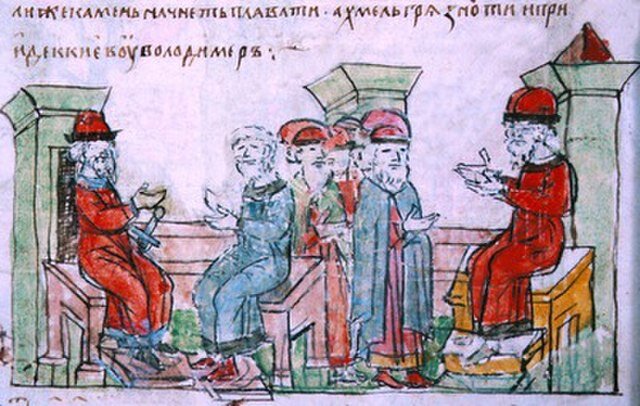 ли же камень начнеть плавати · а хмель грязноти и при
иде к киевоу володимеръ :~